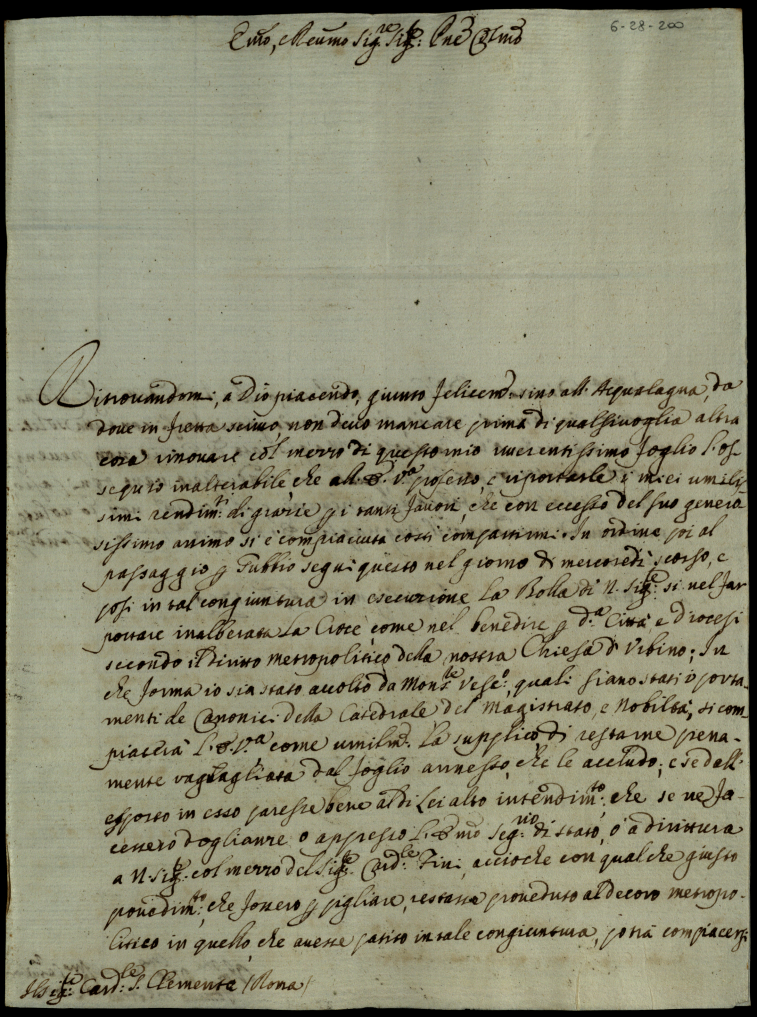 6-28-200
Emo, e Reumo Sig.re Sig.re: Pne Colmo
Ritrovandomi, a Dio piacendo, giunto felicem.te sino all'Acqualagna, da
dove in fretta scrivo, non devo mancare prima di qualsivoglia altra
cosa rinovare col mezzo di questo mio riverentissimo foglio l'os-
sequio inalterabile che all' E. V.ra professo, e riportarle i miei umilis-
simi rendim.ti di grazie p i tanti favori, che con eccesso del suo genero-
sissimo animo si è compiaciuta costi compartirmi. In ordine poi al
passaggio p Gubbio seguì questo nel giorno di mercoredì scorso, e
posi in tal congiuntura in esecuzione la Bolla di N. Sig.re si nel far
portare inalberata la Croce, come nel benedire p d.a Città e Diocesi
secondo il diritto metropolitico della nostra Chiesa d'Urbino; In
che forma io sia stato accolto da Mons.re Vesc.o, quali siano stati i porta-
menti de Canonici della Catedrale del Magistrato, e Nobiltà, si com-
piacerà l'E. V.ra come umilm.te la supplico di restarne piena-
mente ragguagliata dal foglio annesso, che le accludo; e se dall'
esposto in esso paresse bene al di Lei alto intendim.to, che se ne fa-
cessero doglianze o appresso l' Emo Seg.rio di stato, o' a dirittura
a N. Sig.re col mezzo del Sig.re Card.le Fini, acciochè con qualche giusto
provedim.to, che fossero p pigliare, restasse proveduto al decoro metropo-
litico in quello, che avesse patito in tale congiuntura, potrà compiacersi
Il Sig.re Card.le S. Clemente (Roma)